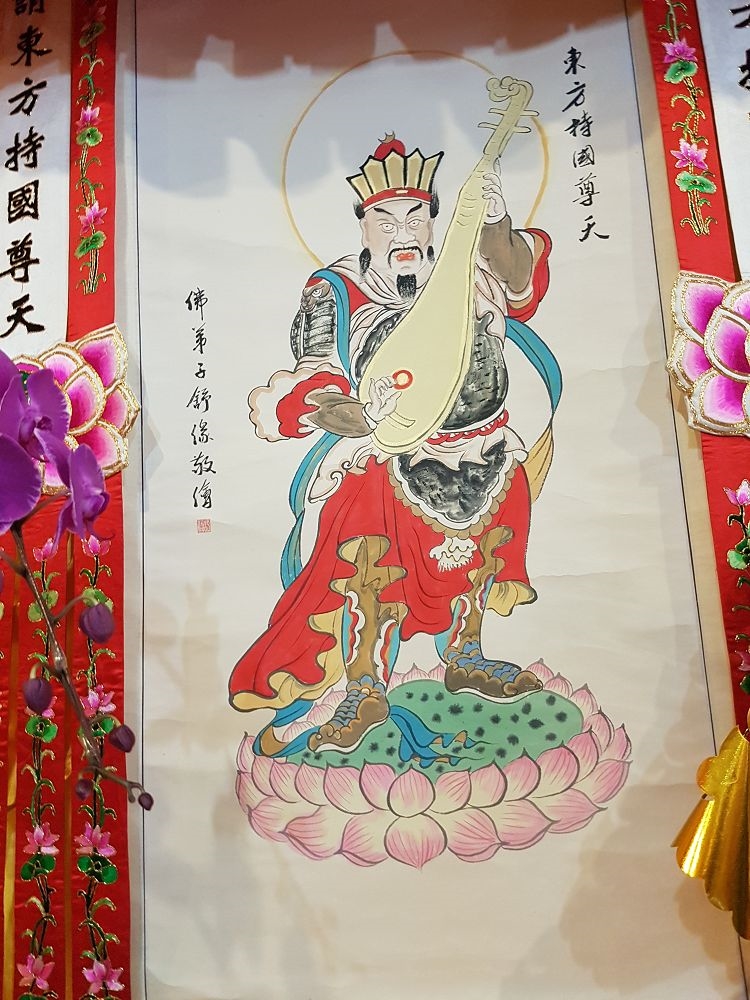 東方持國尊天
佛弟子舒緣敬繪
請東方持國尊天
方持